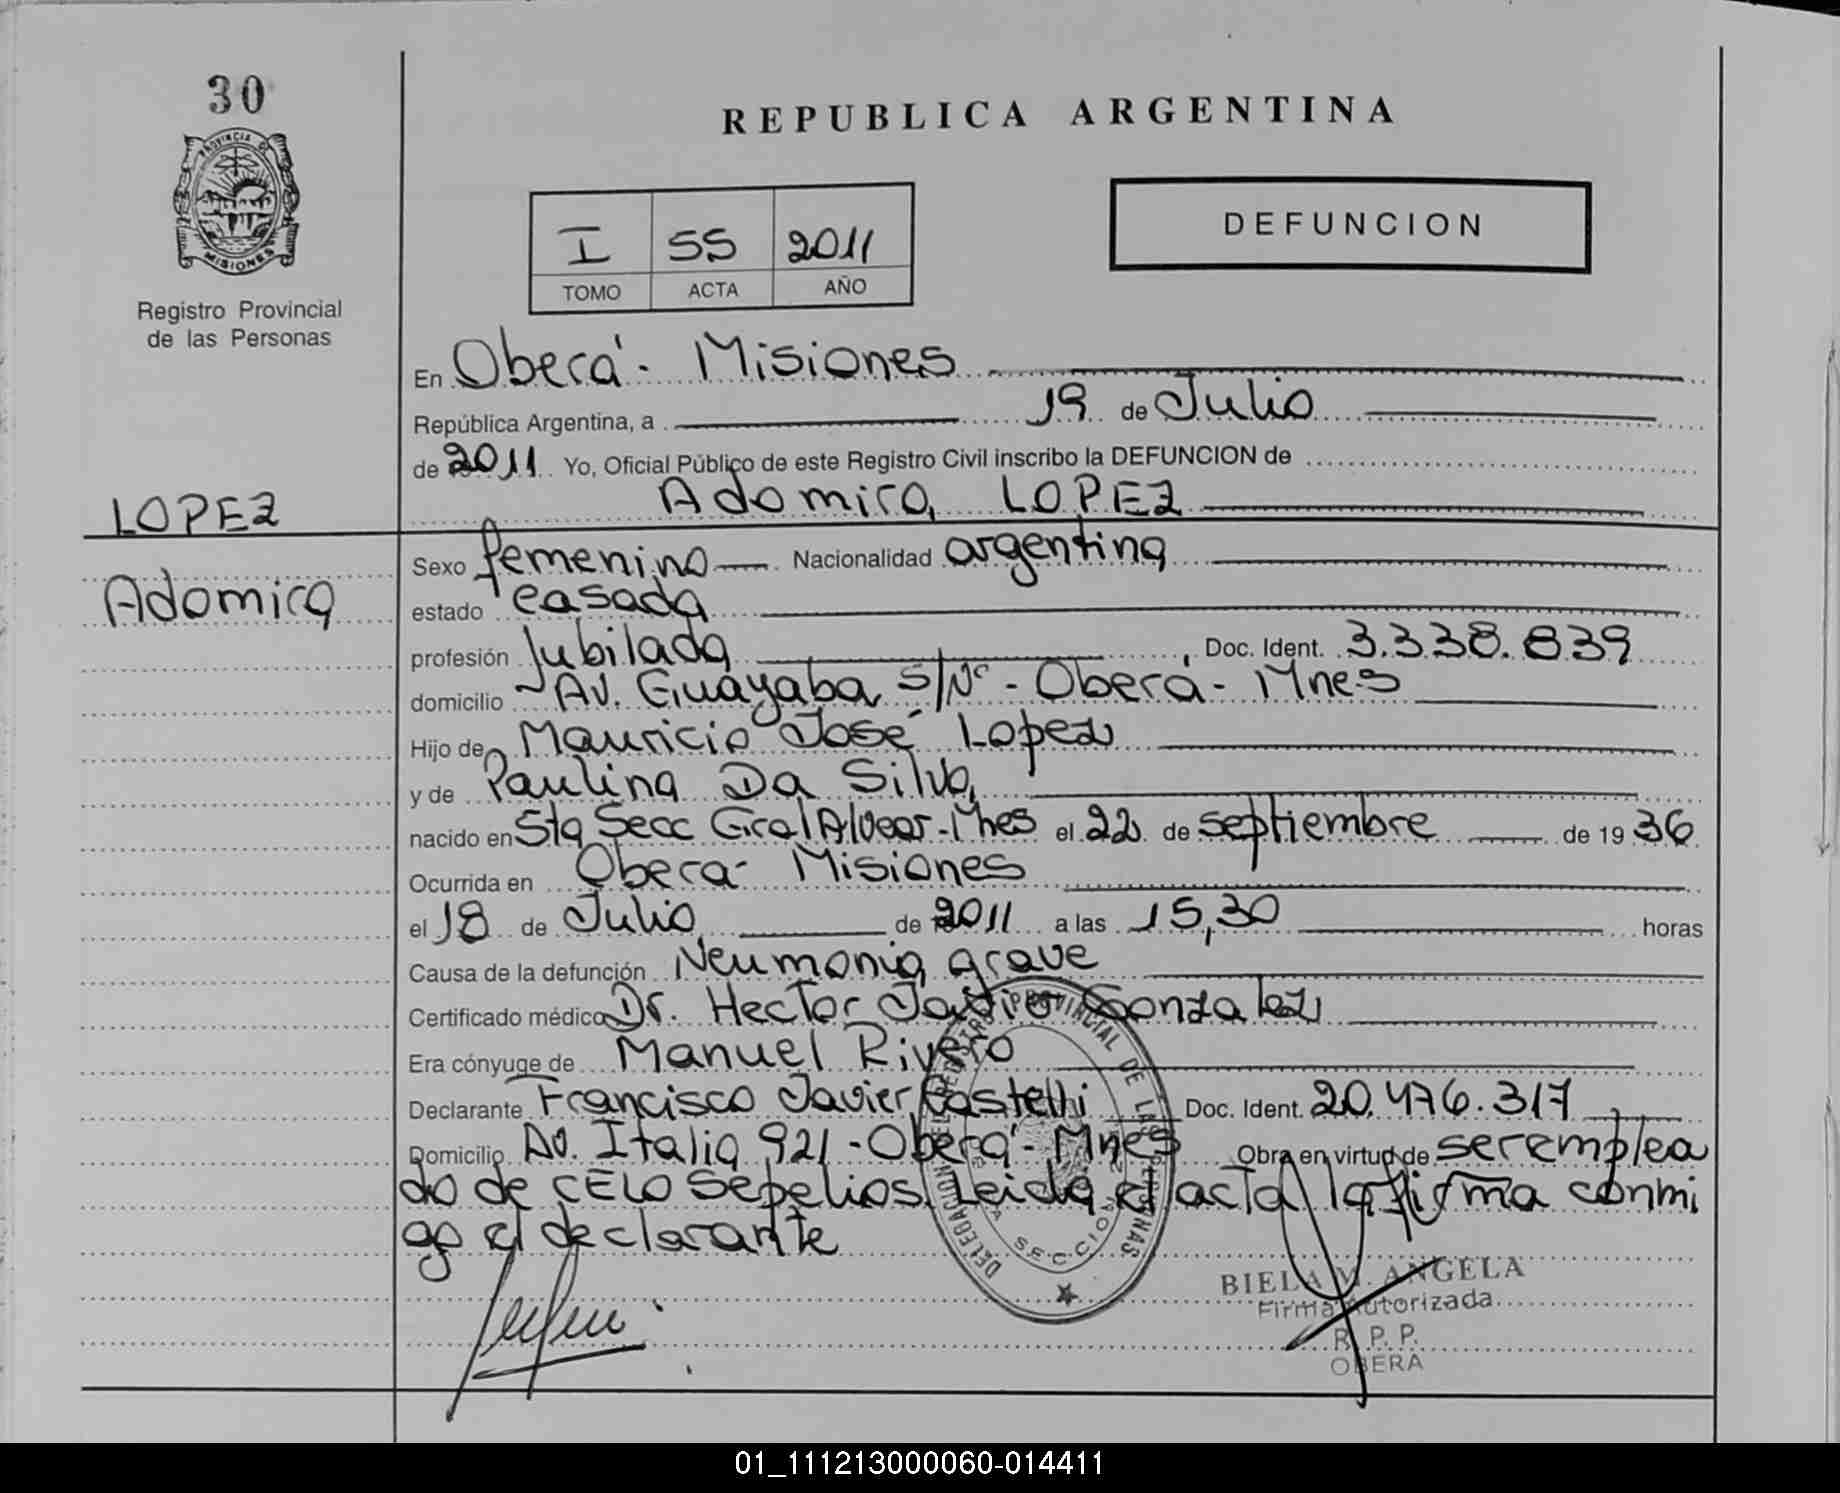 30
PROVINCIA DE
MISIONES
Registro Provincial
de las Personas
REPUBLICA ARGENTINA
I SS 2011
TOMO ACTA AÑO
DEFUNCION
En Oberá - Misiones
República Argentina, a 19 de Julio
de 2011 Yo, Oficial Público de este Registro Civil inscribo la DEFUNCION de
Adomira LOPEZ
LOPEZ
Adomira
Sexo femenino Nacionalidad argentina
estado casada
profesión Jubilada, Doc. Ident. 3.338.839
domicilio Av. Guayaba S/Nº - Oberá - Mnes
Hijo de Mauricio José Lopez
y de Paulina Da Silva
nacido en Sta Secc Gral Alvear - Mnes el 22 de septiembre de 1936
Ocurrida en Oberá - Misiones
el 18 de Julio de 2011 a las 15,30 horas
Causa de la defunción Neumonia grave
Certificado médico Dr. Hector Gonzalez
Era cónyuge de Manuel Rivero
Declarante Francisco Javier Doc. Ident. 20.476.317
Domicilio Av. Italia 921 - Oberá - Mnes Obra en virtud de ser emplea
do de CELO Sepelios. Leida el acta la firma conmi
go el declarante
DELEGACION DEL REGISTRO PROVINCIAL DE LAS PERSONAS
SECCION
BIELA M. ANGELA
Firma Autorizada
R. P. P.
OBERA
01_111213000060-014411